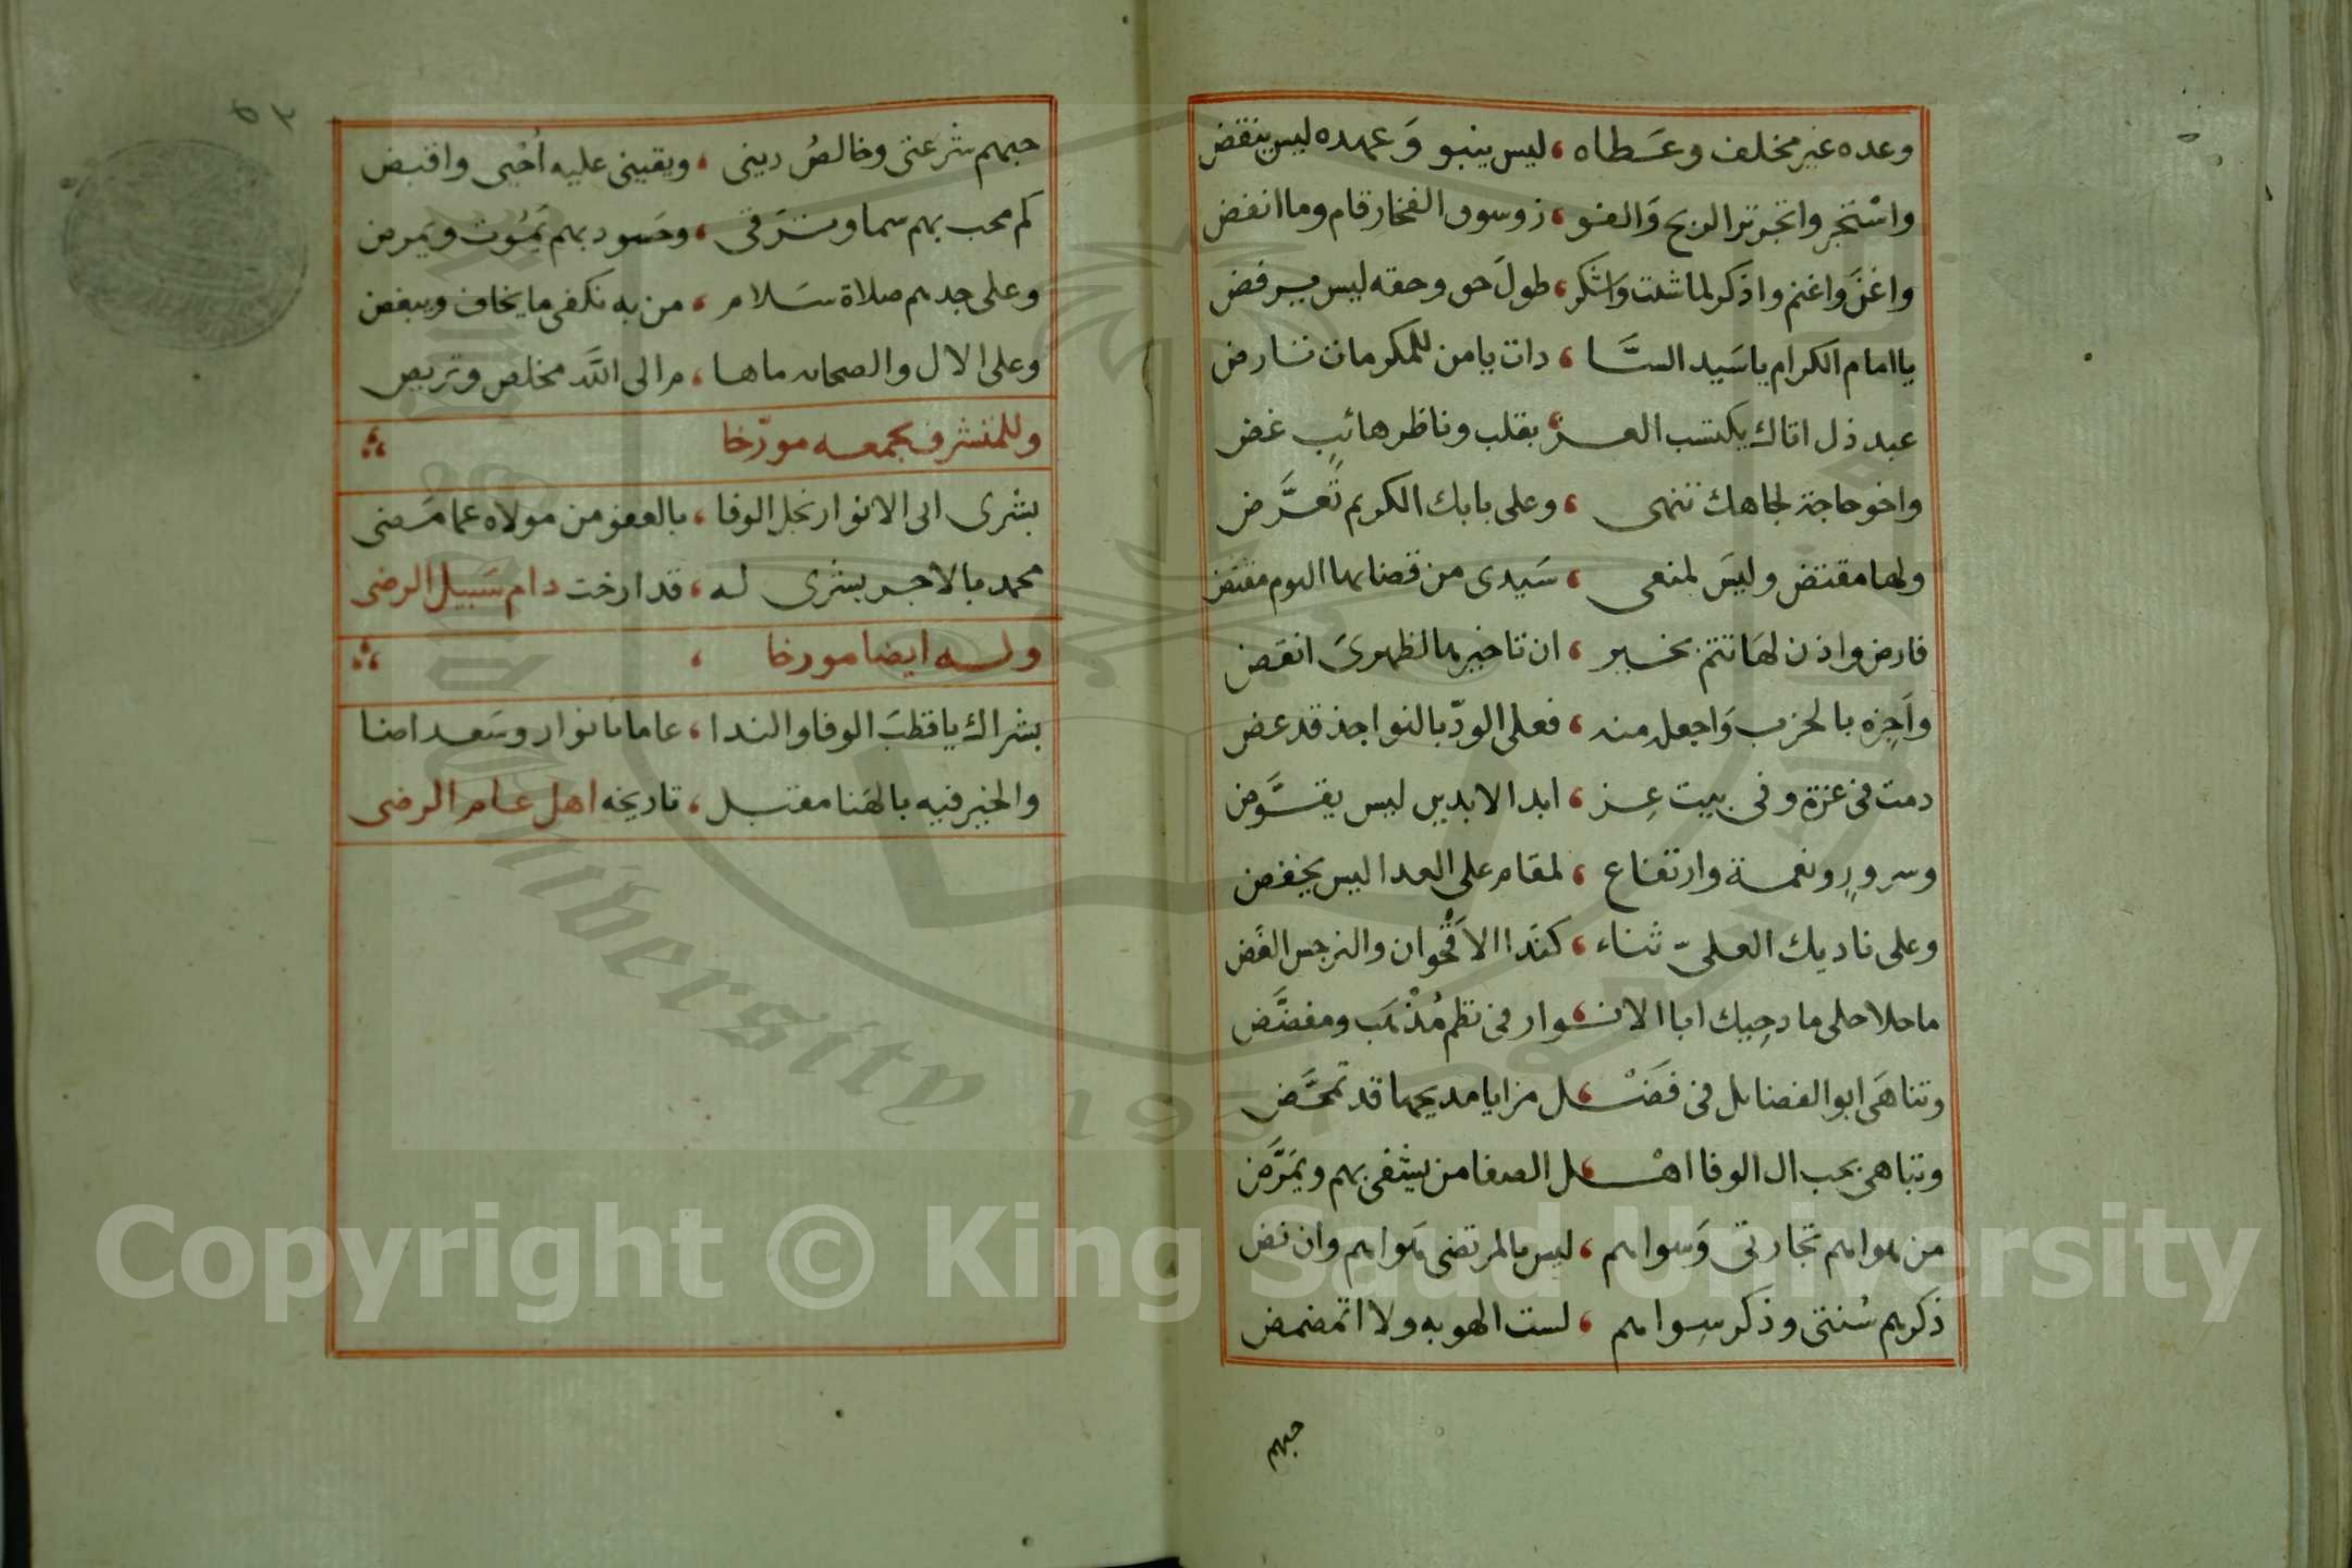 وعده غير مخلف وعَطاه ، ليس ينبو وَعهده ليس ينقض
واسْتجر واتجر تر الربح وَالفو ، زوسوق الفخار قام وما انفض
واغنَ واغنم واذكر لما شئت وَاشكر ، طولَ حق وحقه ليس يرفض
يا امام الكرام يا سَيد السَّا ، دات يا من للمكرمات تنارض
عبد ذل اتاك يكتسب العـز ، بقلب وناظر هائبٍ غض
واخو حاجة لجاهك تنهى ، وعلى بابك الكريم تَعرَّض
ولها مقتض وليَس لمنعى ، سَيدى من قضايها اليوم مقتض
فارض واذن لهَا تتم بخير ، ان تاخيرها لظهرىَ انقض
وَاَجِزه بالحزب وَاجعل منه ، فعلى الودّ بالنواجذ قد عض
دمت فى عزة وفى بيت عِز ، ابد الابدين ليس يقوَّض
وسرورٍ ونعمة وارتفاع ، لمقام على العدا ليس يخفض
وعلى ناديك العلىّ ثناء ، كندا الاَقْحوان والنرجس الغَض
ما حلا حلى مادحِيك ابا الانـوار ، فى نظم مُذْهَب ومفضَّض
وتناهَى ابو الفضايل فى فَضْـل ، مزايا مديحها قد تمحَّض
وتباهى بحب ال الوفا اهْـل ، الصفا من يشفى بهم ويمَرَّض
من هواهم تجارتى وَسواهم ، ليس بالمرتضى هَواهم وان نض
ذكرهم سُنتى وذكر سِواهم ، لست الهو به ولا اتمضمض
حبهم
حبهم شرعتى وخالصُ دينى ، ويقينى عليه اُحْيى واقبض
كم محب بهم سما وترَقى ، وحَسود بهم يَمُوت ويَمرض
وعلى جدهم صلاة سَلام ، من به نكفى ما يخاف ويبغض
وعلى الال والصحابه ما ها ، م الى اللَّه مخلص وتربص
وللمتشرف بجمعه مورّخا
بشرى ابى الانوار نجل الوفا ، بالعفو من مولاه عما مَضى
محمد بالاجـر بشرى له ، قد ارخت دام سَبيل الرضى
وله ايضا مورخا ،
بشراك يا قطبَ الوفا والندا ، عاما بانوار وسَعد اضا
والخير فيه بالهَنا مقبـل ، تاريخه اهل عـام الرضى
Copyright © King Saud University
King Saud University 1957